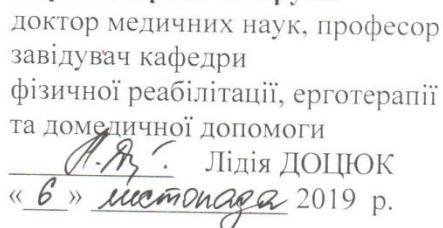 доктор медичних наук, професор
завідувач кафедри
фізичної реабілітації, ерготерапії
та домедичної допомоги
Лідія ДОЦЮК
« 6 » листопада 2019 р.